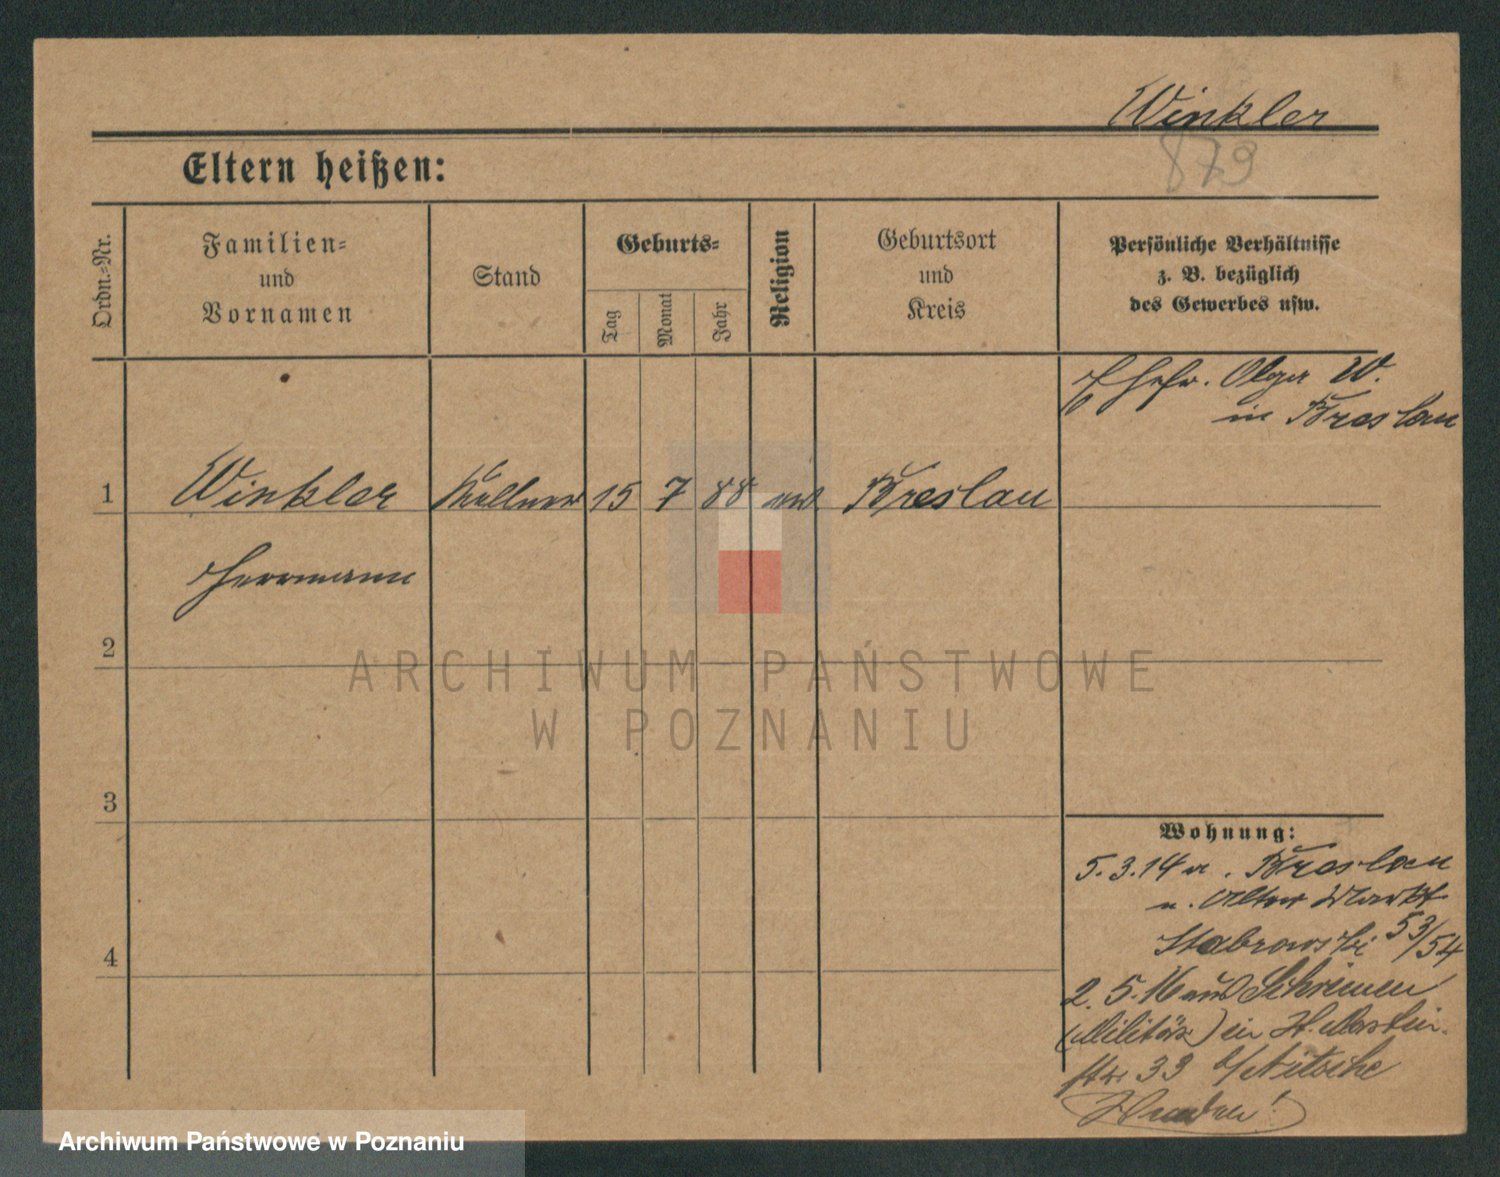 Winkler
879
Eltern heißen:
Ordn.-Nr.
Familien-
und
Vornamen
Stand
Geburts-
Tag
Monat
Jahr
Religion
Geburtsort
und
Kreis
Persönliche Verhältnisse
z. B. bezüglich
des Gewerbes usw.
Ehefr. Olga W.
in Breslau
1
Winkler
Kellner
15
7
88
Breslau
Herrmann
2
3
4
Wohnung:
5.3.14 a. Breslau
n. Alter Markt
53/54
2.5.16 aus Schrimm
(Militär) in St. Martin-
str 33 b/ Nitsche
ARCHIWUM PAŃSTWOWE
W POZNANIU
Archiwum Państwowe w Poznaniu